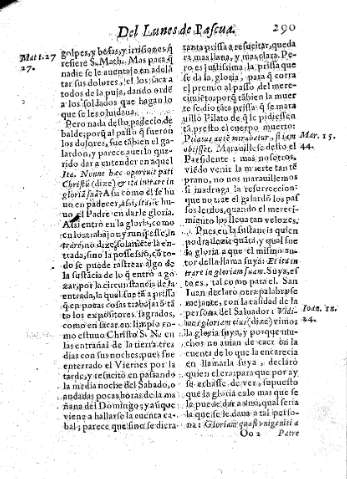 Del Lunes de Pascua. 290
Matt. 27
27.
golpes, y befas, y irrisiones q̃
refiere S. Math. Mas para q̃
nadie se le auentaje en adelã
tar sus dolores, el los saca a
todos de la puja, dando ordẽ
a los soldados que hagan lo
que se les oluidaua.
Pero nada desto padecio de
balde: porq̃ al passo q̃ fueron
los dolores, fue tãbien el ga-
lardon, y parece auerlo que-
rido dar a entender en aquel
Ita. Nonne hæc oportuit pati
Christũ (dize) & ita intrare in
gloriã suã? Assi como el se hu
uo en padecer, assi, se huuo
el Padre en darle gloria.
Assi entrò en la gloria, como
en los trabajos y
trãrà no dize solamẽte la en-
trada, sino la possession, cõ to
do se puede rastrear algo de
la sustãcia de lo q̃ entrò a go-
zar, por la circunstancia de la
entrada, la qual fue tã prissa
q̃ en pocas cosas trabajã tã-
to los expositores sagrados,
como en sacar en limpio co-
mo estuuo Christo S. N. en
las entrañas de la tierra tres
dias con sus noches, pues fue
enterrado el Viernes por la
tarde, y resucitò en passando
la media noche del Sabado, o
andadas pocas horas de la ma
ñana del Domingo; y aũque
vienẽ a hallarse la cuenta ca-
bal; parece que sino se diera
tanta prissa a resucitar, queda
ra mas llana, y mas clara. Pe-
ro es justissima la prissa que
se da la gloria, para q̃ corra
el premio al passo del mere-
cimiẽto: porq̃ tãbien la muer
te se dio tãta prissa q̃ se mara
uillò Pilato de q̃ le pidiessen
tã presto el cuerpo muerto:
Pilatus autẽ mirabatur, si iam
obijsset. Marauillese desto el
Presidente: mas nosotros,
viẽdo venir la muerte tan tẽ
prano, no nos marauillemos
si madruga la resurreccion:
que no trae el galardõ los pas
sos lerdos, quando el mereci-
miento los lleua tan veloces.
Pues, en la sustancia quien
podrà dezir quãta, y qual fue
la gloria a que el mismo au-
tor della llama suya: Et ita in
trare in gloriam suam. Suya, es
to es, tal como para el. San
Iuan declarò otra palabra se
mejante, con la calidad de la
persona del Saluador: Vidi-
mus gloriam eius (dize) vimos
la gloria suya, y porque mu-
chos no auian de caer en la
cuenta de lo que la encarecia
en llamarla suya, declarò
quien el era para que por ay
se echasse de ver, supuesto
que la gloria calo mas que se
la puede dar a vno, qual seria
la que se le daua a tal perso-
na: Gloriam quasi vnigeniti a
Mar. 15.
44.
Ioan. 12.
44.
Oo 2 Patre